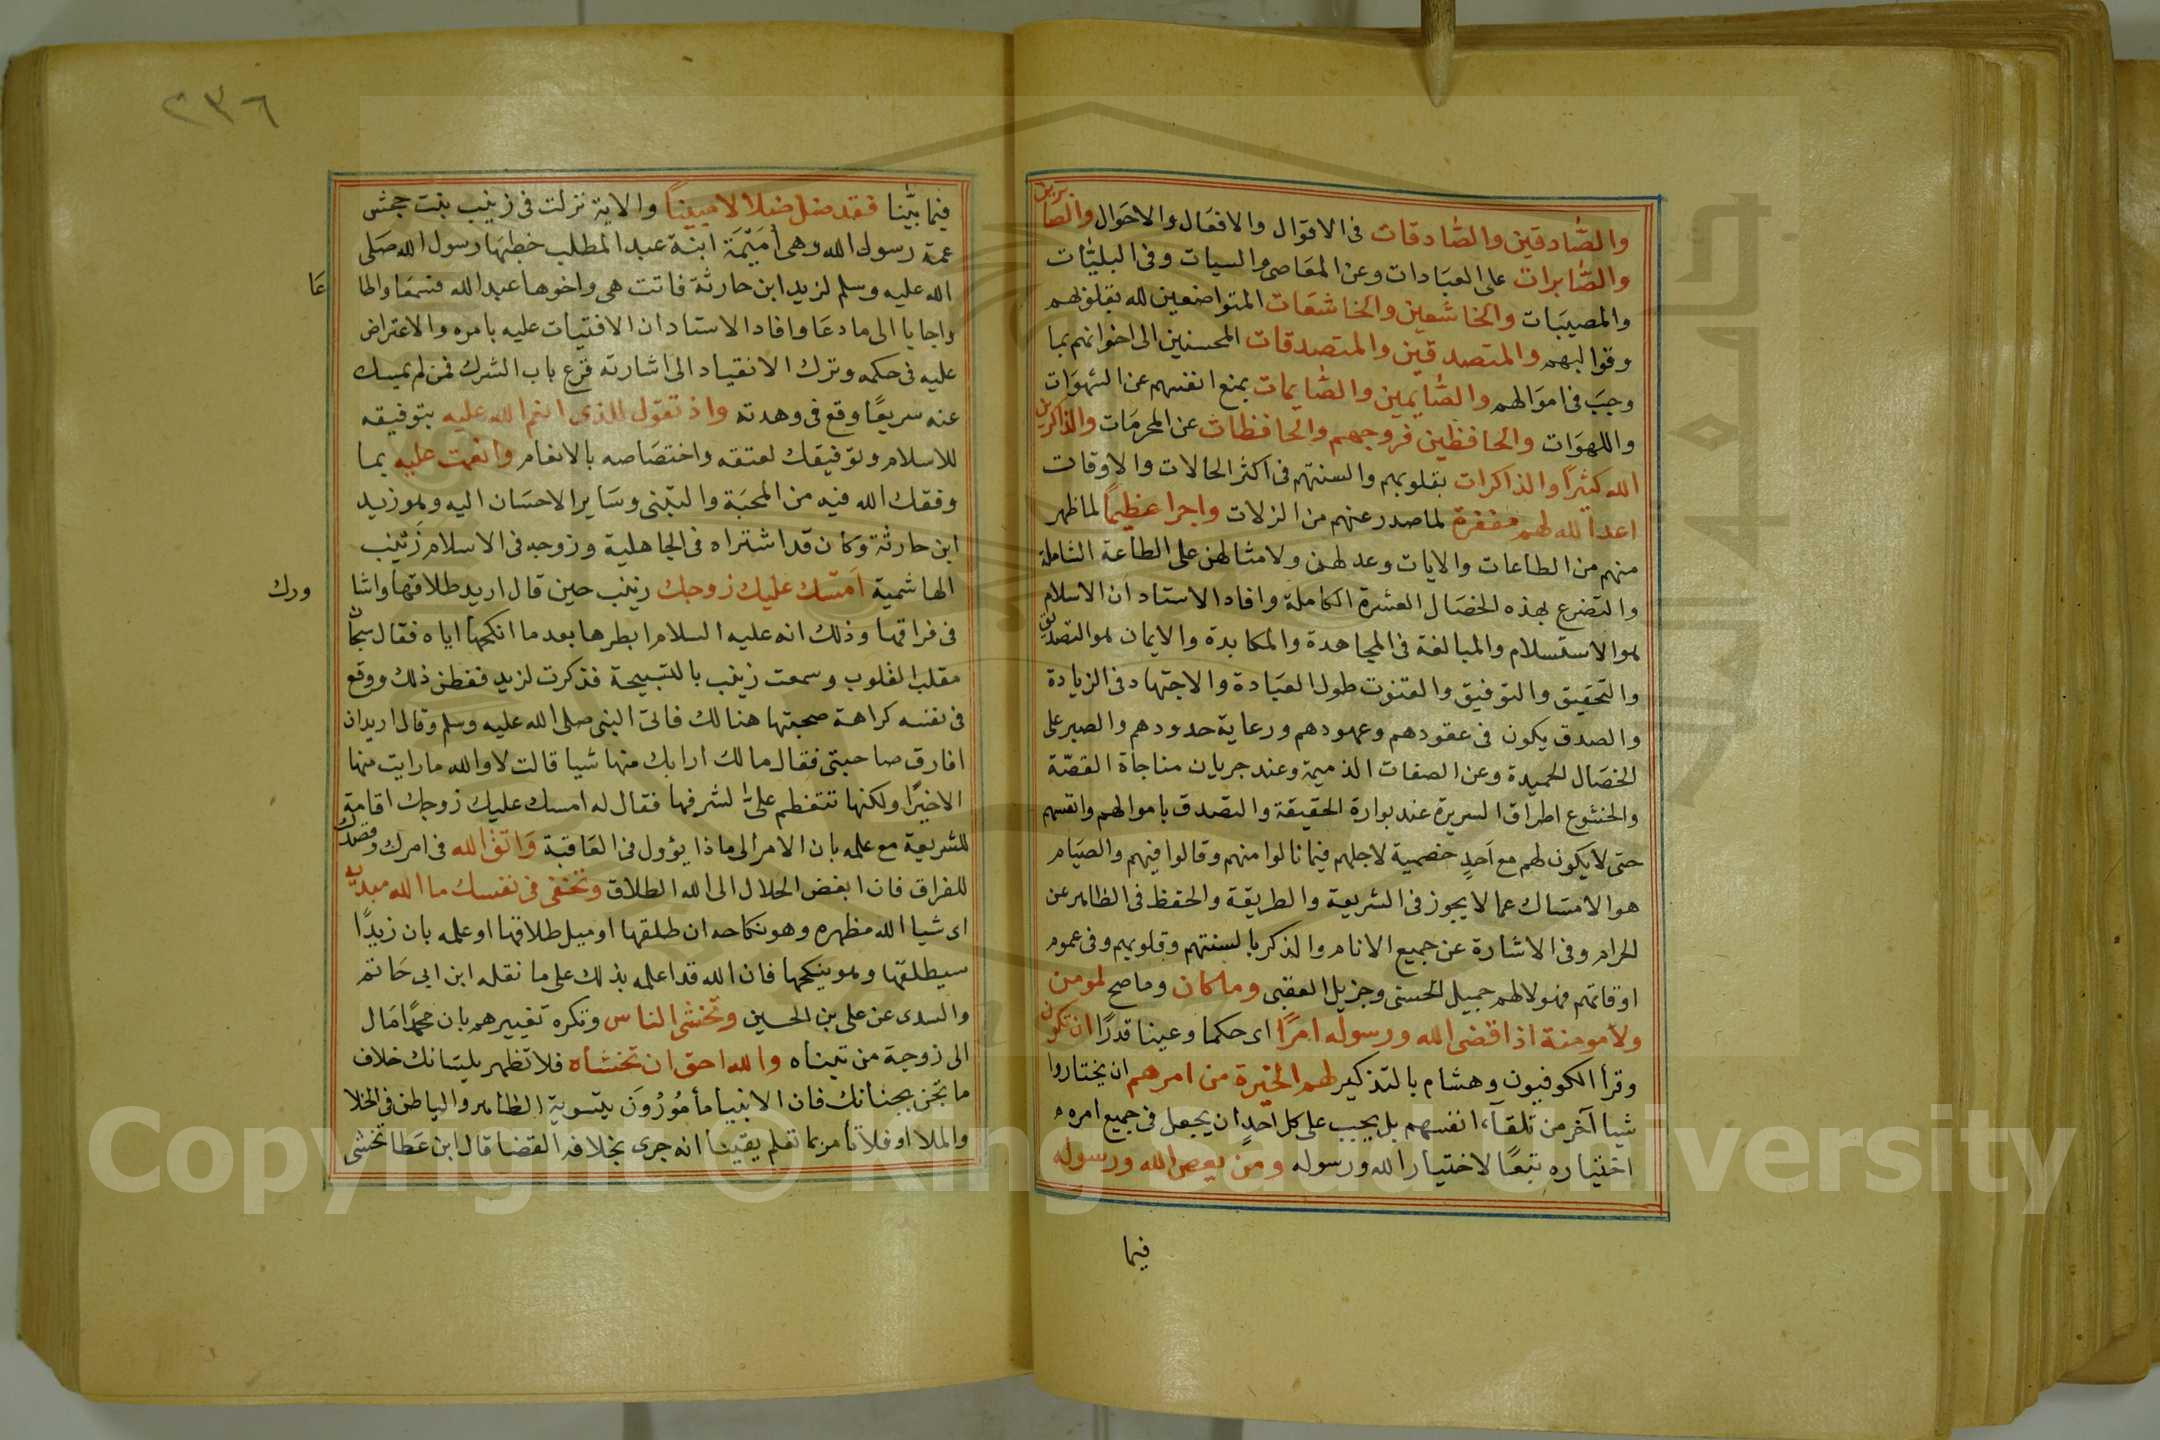 والصّادقين والصّادقات فى الاقوال والافعال والاحوال والصابرين
والصّابرات على العبادات وعن المعاصى والسيات وفى البليّات
والمصيبات والخاشعين والخاشعات المتواضعين لله بقلوبهم
وقوالبهم والمتصدقين والمتصدقات المحسنين الى اخوانهم بما
وجب فى اموالهم والصّايمين والصّايمات بمنع انفسهم عن الشهوات
واللهوات والحافظين فروجهم والحافظات عن المحرمات والذاكرين
الله كثيرًا والذاكرات بقلوبهم والسنتهم فى اكثر الحالات والاوقات
اعد الله لهم مغفرة لما صدر عنهم من الزلات واجرا عظيمًا لما ظهر
منهم من الطاعات والايات وعد لهن ولامثالهن على الطاعة الشاملة
والتضرع بهذه الخصال العشرة الكاملة وافاد الاستاد ان الاسلام
هو الاستسلام والمبالغة فى المجاهدة والمكابدة والايمان هو التصديق
والتحقيق والتوفيق والقنوت طول العبادة والاجتهاد فى الزيادة
والصدق يكون فى عقودهم وعهودهم ورعاية حدودهم والصبر على
الخصال الحميدة وعن الصفات الذميمة وعند جريان مناجاة القصّة
والخشوع اطراق السريرة عند بوارة الحقيقة والتصدق باموالهم وانفسهم
حتى لا يكون لهم مع احدٍ خصمية لاجلهم فيما نالوا منهم وقالوا فيهم والصيام
هو الامساك عما لا يجوز فى الشريعة والطريقة والحفظ فى الظاهر عن
الحرام وفى الاشارة عن جميع الانام والذكر بالسنتهم وقلوبهم وفى عموم
اوقاتهم فهولا لهم جميل الحسنى وجزيل العقبى وما كان وما صح لمومن
ولا مومنة اذا قضى الله ورسوله امرًا اى حكما وعينا قدرًا ان تكون
وقرا الكوفيون وهشام بالتذكير لهم الخيرة من امرهم ان يختاروا
شيا آخر من تلقاء انفسهم بل يجب على كل احدٍ ان يجعل فى جميع امره
اختياره تبعًا لاختيار الله ورسوله ومن يعص الله ورسوله
فيما
٢٣٦
فيما بيّنا فقد ضل ضلالا مبيناً والاية نزلت فى زينب بنت جحش
عمة رسول الله وهى أميمة ابنة عبد المطلب خطبها رسول الله صلى
الله عليه وسلم لزيد ابن حارثة فابت هى واخوها عبد الله فسمعا واطا
عا
واجابا الى ما دعا وافاد الاستاد ان الافتيات عليه بامره والاعتراض
عليه فى حكمه وترك الانقياد الى اشارته قرع باب الشرك فمن لم يمسك
عنه سريعًا وقع فى وهدته واذ تقول للذى انعم الله عليه بتوفيقه
للاسلام وتوفيقك لعتقه واختصاصه بالانعام وانعمت عليه بما
وفقك الله فيه من المحبة والتبنى وساير الاحسان اليه وهو زيد
ابن حارثة وكان قد اشتراه فى الجاهلية وزوجه فى الاسلام زينب
الهاشمية امسك عليك زوجك زينب حين قال اريد طلاقها واشا
ورك
فى فراقها وذلك انه عليه السلام ابطرها بعد ما انكحها اياه فقال سبحان
مقلب القلوب وسمعت زينب بالتسبيحة فذكرت لزيد ففطن ذلك ووقع
فى نفسه كراهة صحبتها هنالك فاتى النبى صلى الله عليه وسلم وقال اريد ان
افارق صاحبتى فقال مالك ارابك منها شيا قالت لا والله ما رايت منها
الاخيرًا ولكنها تتعظم علىّ لشرفها فقال له امسك عليك زوجك اقامة
للشريعة مع علمه بان الامر الى ماذا يؤول فى العاقبة واتق الله فى امرك وقصدك
للفراق فان ابغض الحلال الى الله الطلاق وتخفى فى نفسك ما الله مبديه
اى شيا الله مظهره وهو نكاحه ان طلقها او ميل طلاقها او علمه بان زيدًا
سيطلقها وهو ينكحها فان الله قد اعلمه بذلك على ما نقله ابن ابى حاتم
والسدى عن على بن الحسين وتخشى الناس وتكره تغييرهم بان محمدًا مال
الى زوجة من تبناه والله احق ان تخشاه فلا تظهر بلسانك خلاف
ما تجن بجنانك فان الانبيا مأمورون بتسوية الظاهر والباطن فى الخلا
والملا او فلا تامر بما تعلم يقينا انه جرى بخلافه القضا قال ابن عطا تخشى
Copyright © King Saud University